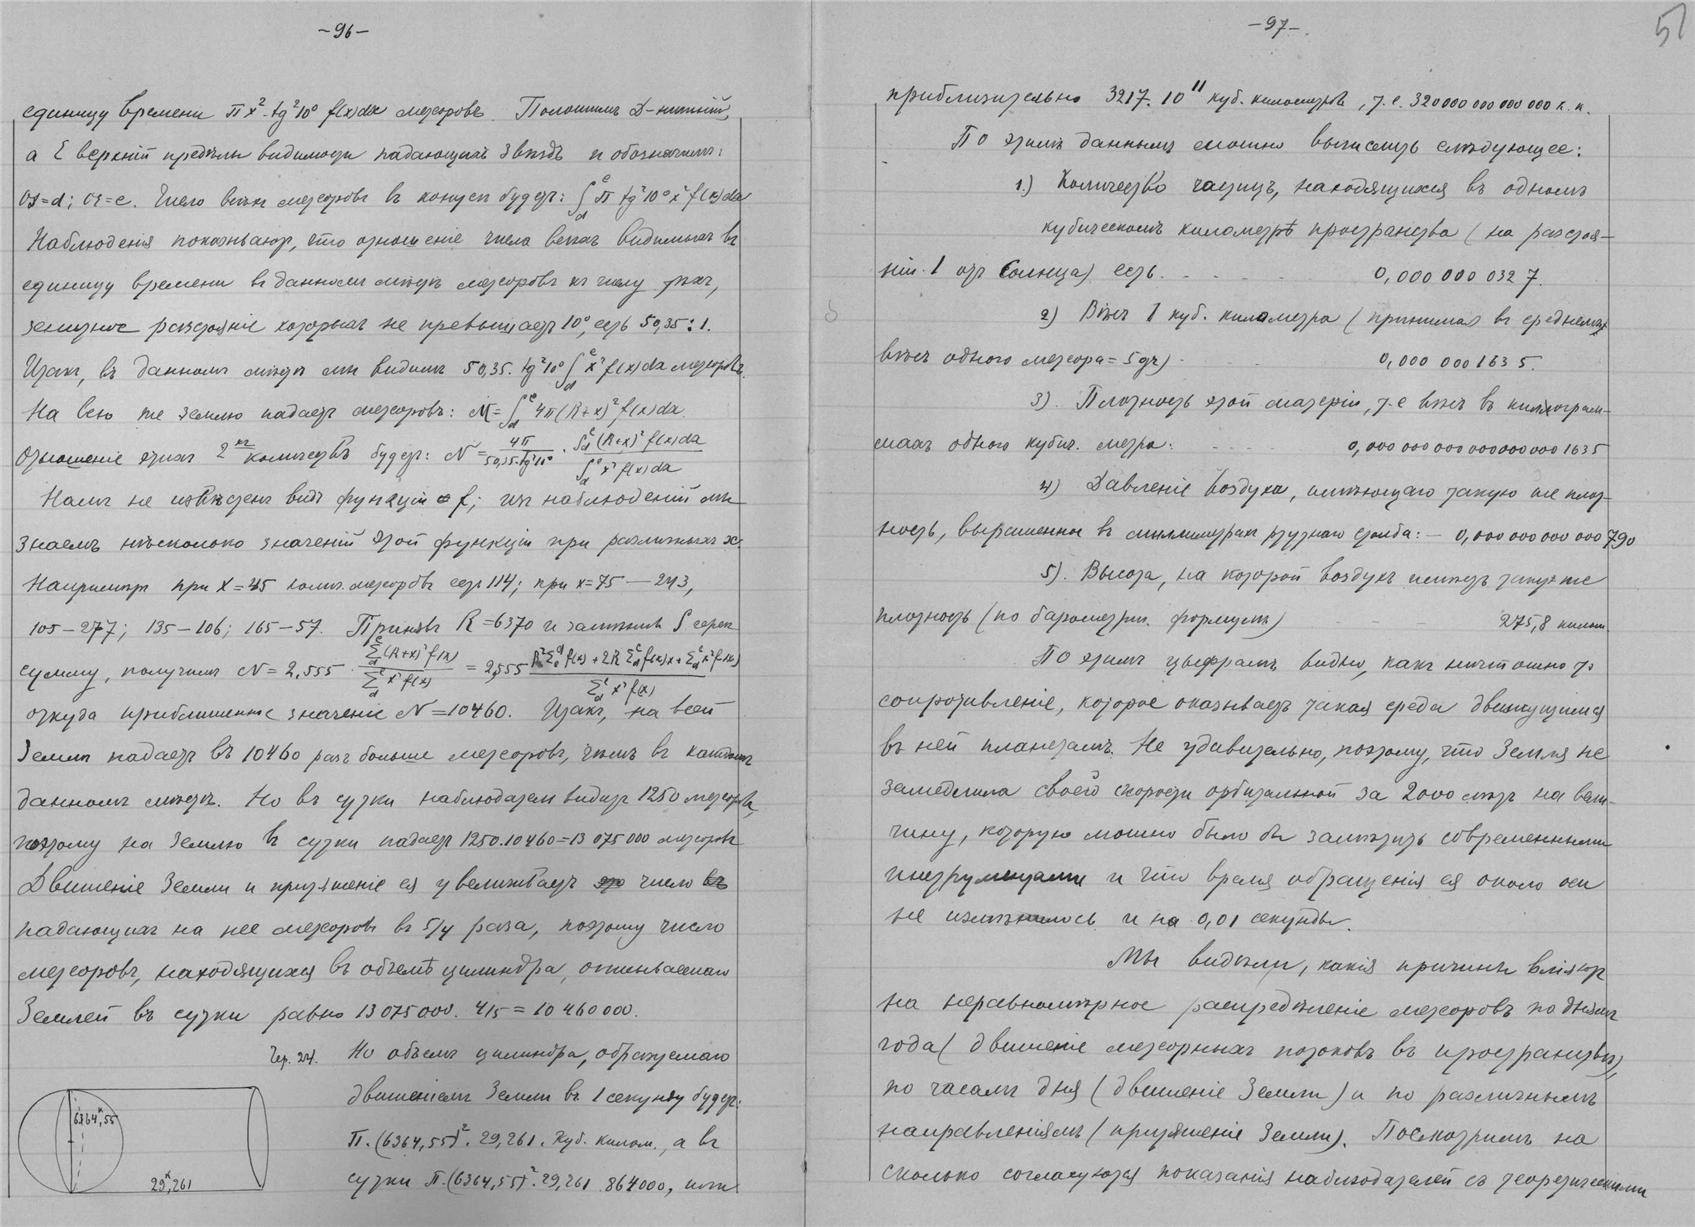 -96-
единицу времени πx². tg²10° f(x)dx метеоровъ. Положимъ D-нижній,
а E верхній предѣлы видимости падающихъ звѣздъ и обозначимъ:
OD=d; OE=e. Число всѣхъ метеоровъ въ конусѣ будетъ: ∫ₐᵉ π tg²10° x² f(x)dx
Наблюденія показываютъ, что отношеніе числа всѣхъ видимыхъ въ
единицу времени въ данномъ мѣстѣ метеоровъ къ числу тѣхъ,
зенитное разстояніе которыхъ не превышаетъ 10°, есть 50,35:1.
Итакъ, въ данномъ мѣстѣ мы видимъ 50,35. tg²10° ∫ x² f(x)dx метеоровъ.
На всю же землю падаетъ метеоровъ: M = ∫ 4π(R+x)² f(x)dx.
Отношеніе этихъ 2хъ количествъ будетъ: N = 4π/50,35.tg²10° · ∫(R+x)² f(x)dx / ∫x² f(x)dx
Намъ не извѣстенъ видъ функціи f; изъ наблюденій мы
знаемъ нѣсколько значеній этой функціи при различныхъ x.
Напримѣръ при x=45 колич. метеоровъ есть 114; при x=75 — 243,
105-277; 135-106; 165-57. Принявъ R=6370 и замѣнивъ ∫ черезъ
сумму, получимъ N=2,555 · Σ(R+x)² f(x) / Σx² f(x) = 2,555 R²Σf(x)+2RΣf(x)x+Σx² f(x) / Σx² f(x)
откуда приближенное значеніе N=10460. Итакъ, на всей
Землѣ падаетъ въ 10460 разъ больше метеоровъ, чѣмъ въ каждомъ
данномъ мѣстѣ. Но въ сутки наблюдатель видитъ 1250 метеоровъ,
поэтому на Землю въ сутки падаетъ 1250.10460=13 075 000 метеоровъ
Движеніе Земли и притяженіе ея увеличиваетъ число
падающихъ на нее метеоровъ въ 5/4 раза, поэтому число
метеоровъ, находящихся въ объемѣ цилиндра, описываемаго
Землей въ сутки равно 13 075 000. 4/5 = 10 460 000.
Чер. 24. Но объемъ цилиндра, образуемаго
движеніемъ Земли въ 1 секунду будетъ:
π.(6364,55)². 29,261. куб. килом., а въ
сутки π.(6364,55)². 29,261. 864000, или
6364,55
29,261
-97-
51
приблизительно 3217. 10¹¹ куб. километровъ, т.е. 320 000 000 000 000 к. к.
По этимъ даннымъ можно вычислить слѣдующее:
1.) Количество частицъ, находящихся въ одномъ
кубическомъ километрѣ пространства (на разстоя-
ніи 1 отъ Солнца) есть. 0,000 000 032 7.
2) Вѣсъ 1 куб. километра (принимая въ среднемъ
вѣсъ одного метеора = 5 гр.) 0,000 000 163 5.
3). Плотность этой матеріи, т.е вѣсъ въ килограм-
махъ одного кубич. метра: 0,000 000 000 000 000 000 1635
4) Давленіе воздуха, имѣющаго такую же плот-
ность, выраженное въ миллиметрахъ ртутнаго столба: — 0,000 000 000 000 790
5). Высота, на которой воздухъ имѣетъ такую же
плотность (по барометрич. формулѣ) 275,8 килом.
По этимъ цыфрамъ видно, какъ ничтожно то
сопротивленіе, которое оказываетъ такая среда движущимся
въ ней планетамъ. Не удивительно, поэтому, что Земля не
замедлила своей скорости орбитальной за 2000 лѣтъ на вели-
чину, которую можно было бы замѣтить современными
инструментами и что время обращенія ея около оси
не измѣнилось и на 0,01 секунды.
Мы видѣли, какія причины вліяютъ
на неравномѣрное распредѣленіе метеоровъ по днямъ
года (движеніе метеорныхъ потоковъ въ пространствѣ),
по часамъ дня (движеніе Земли) и по различнымъ
направленіямъ (притяженіе Земли). Посмотримъ на
сколько согласуются показанія наблюдателей съ теоретическими